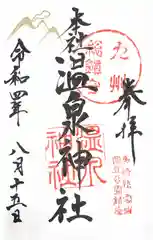 奉拝
九州
総鎮守
本社温泉神社
令和四年
八月十五日